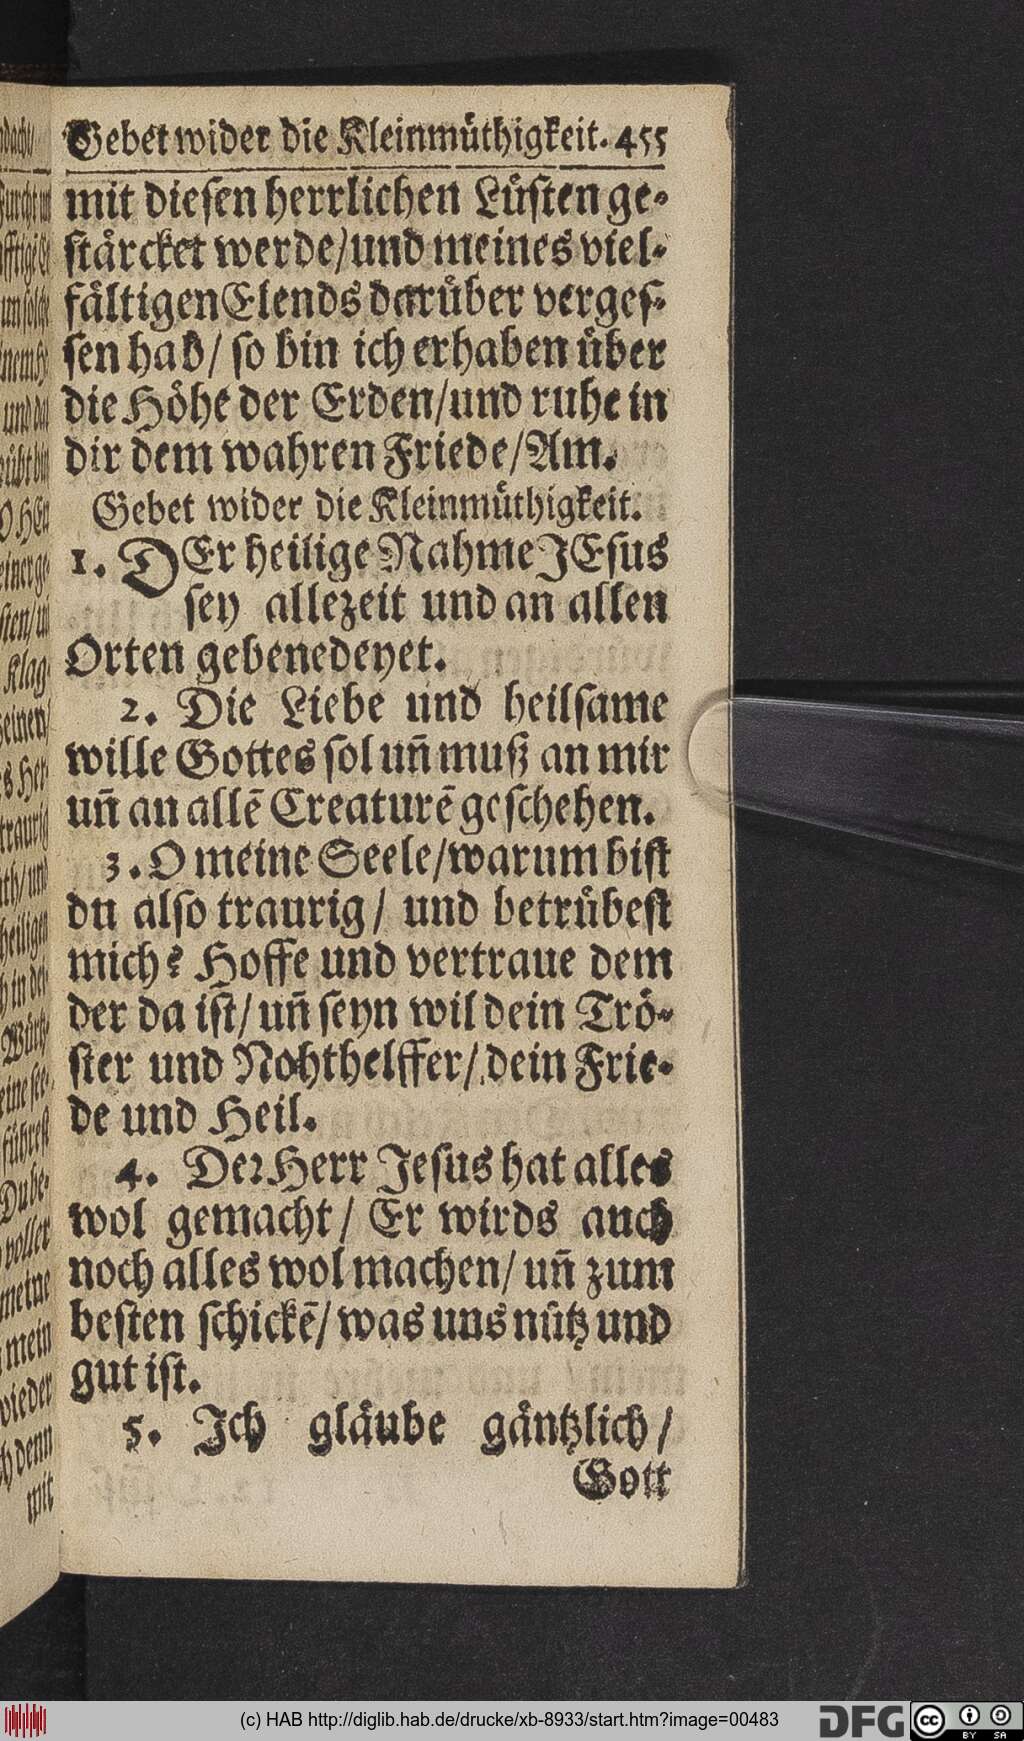 Gebet wider die Kleinmüthigkeit. 455
mit diesen herrlichen Lüsten ge-
stärcket werde/und meines viel-
fältigen Elends darüber verges-
sen hab/ so bin ich erhaben über
die Höhe der Erden/und ruhe in
dir dem wahren Friede/Am.
Gebet wider die Kleinmüthigkeit.
1. DEr heilige Nahme JEsus
sey allezeit und an allen
Orten gebenedeyet.
2. Die Liebe und heilsame
wille Gottes sol uñ muß an mir
uñ an allē Creaturē geschehen.
3. O meine Seele/warum bist
du also traurig/ und betrübest
mich? Hoffe und vertraue dem
der da ist/ uñ seyn wil dein Trö-
ster und Nohthelffer/ dein Frie-
de und Heil.
4. Der Herr Jesus hat alles
wol gemacht/ Er wirds auch
noch alles wol machen/ uñ zum
besten schickē/ was uns nütz und
gut ist.
5. Ich gläube gäntzlich/
Gott
(c) HAB http://diglib.hab.de/drucke/xb-8933/start.htm?image=00483
DFG
cc
BY SA